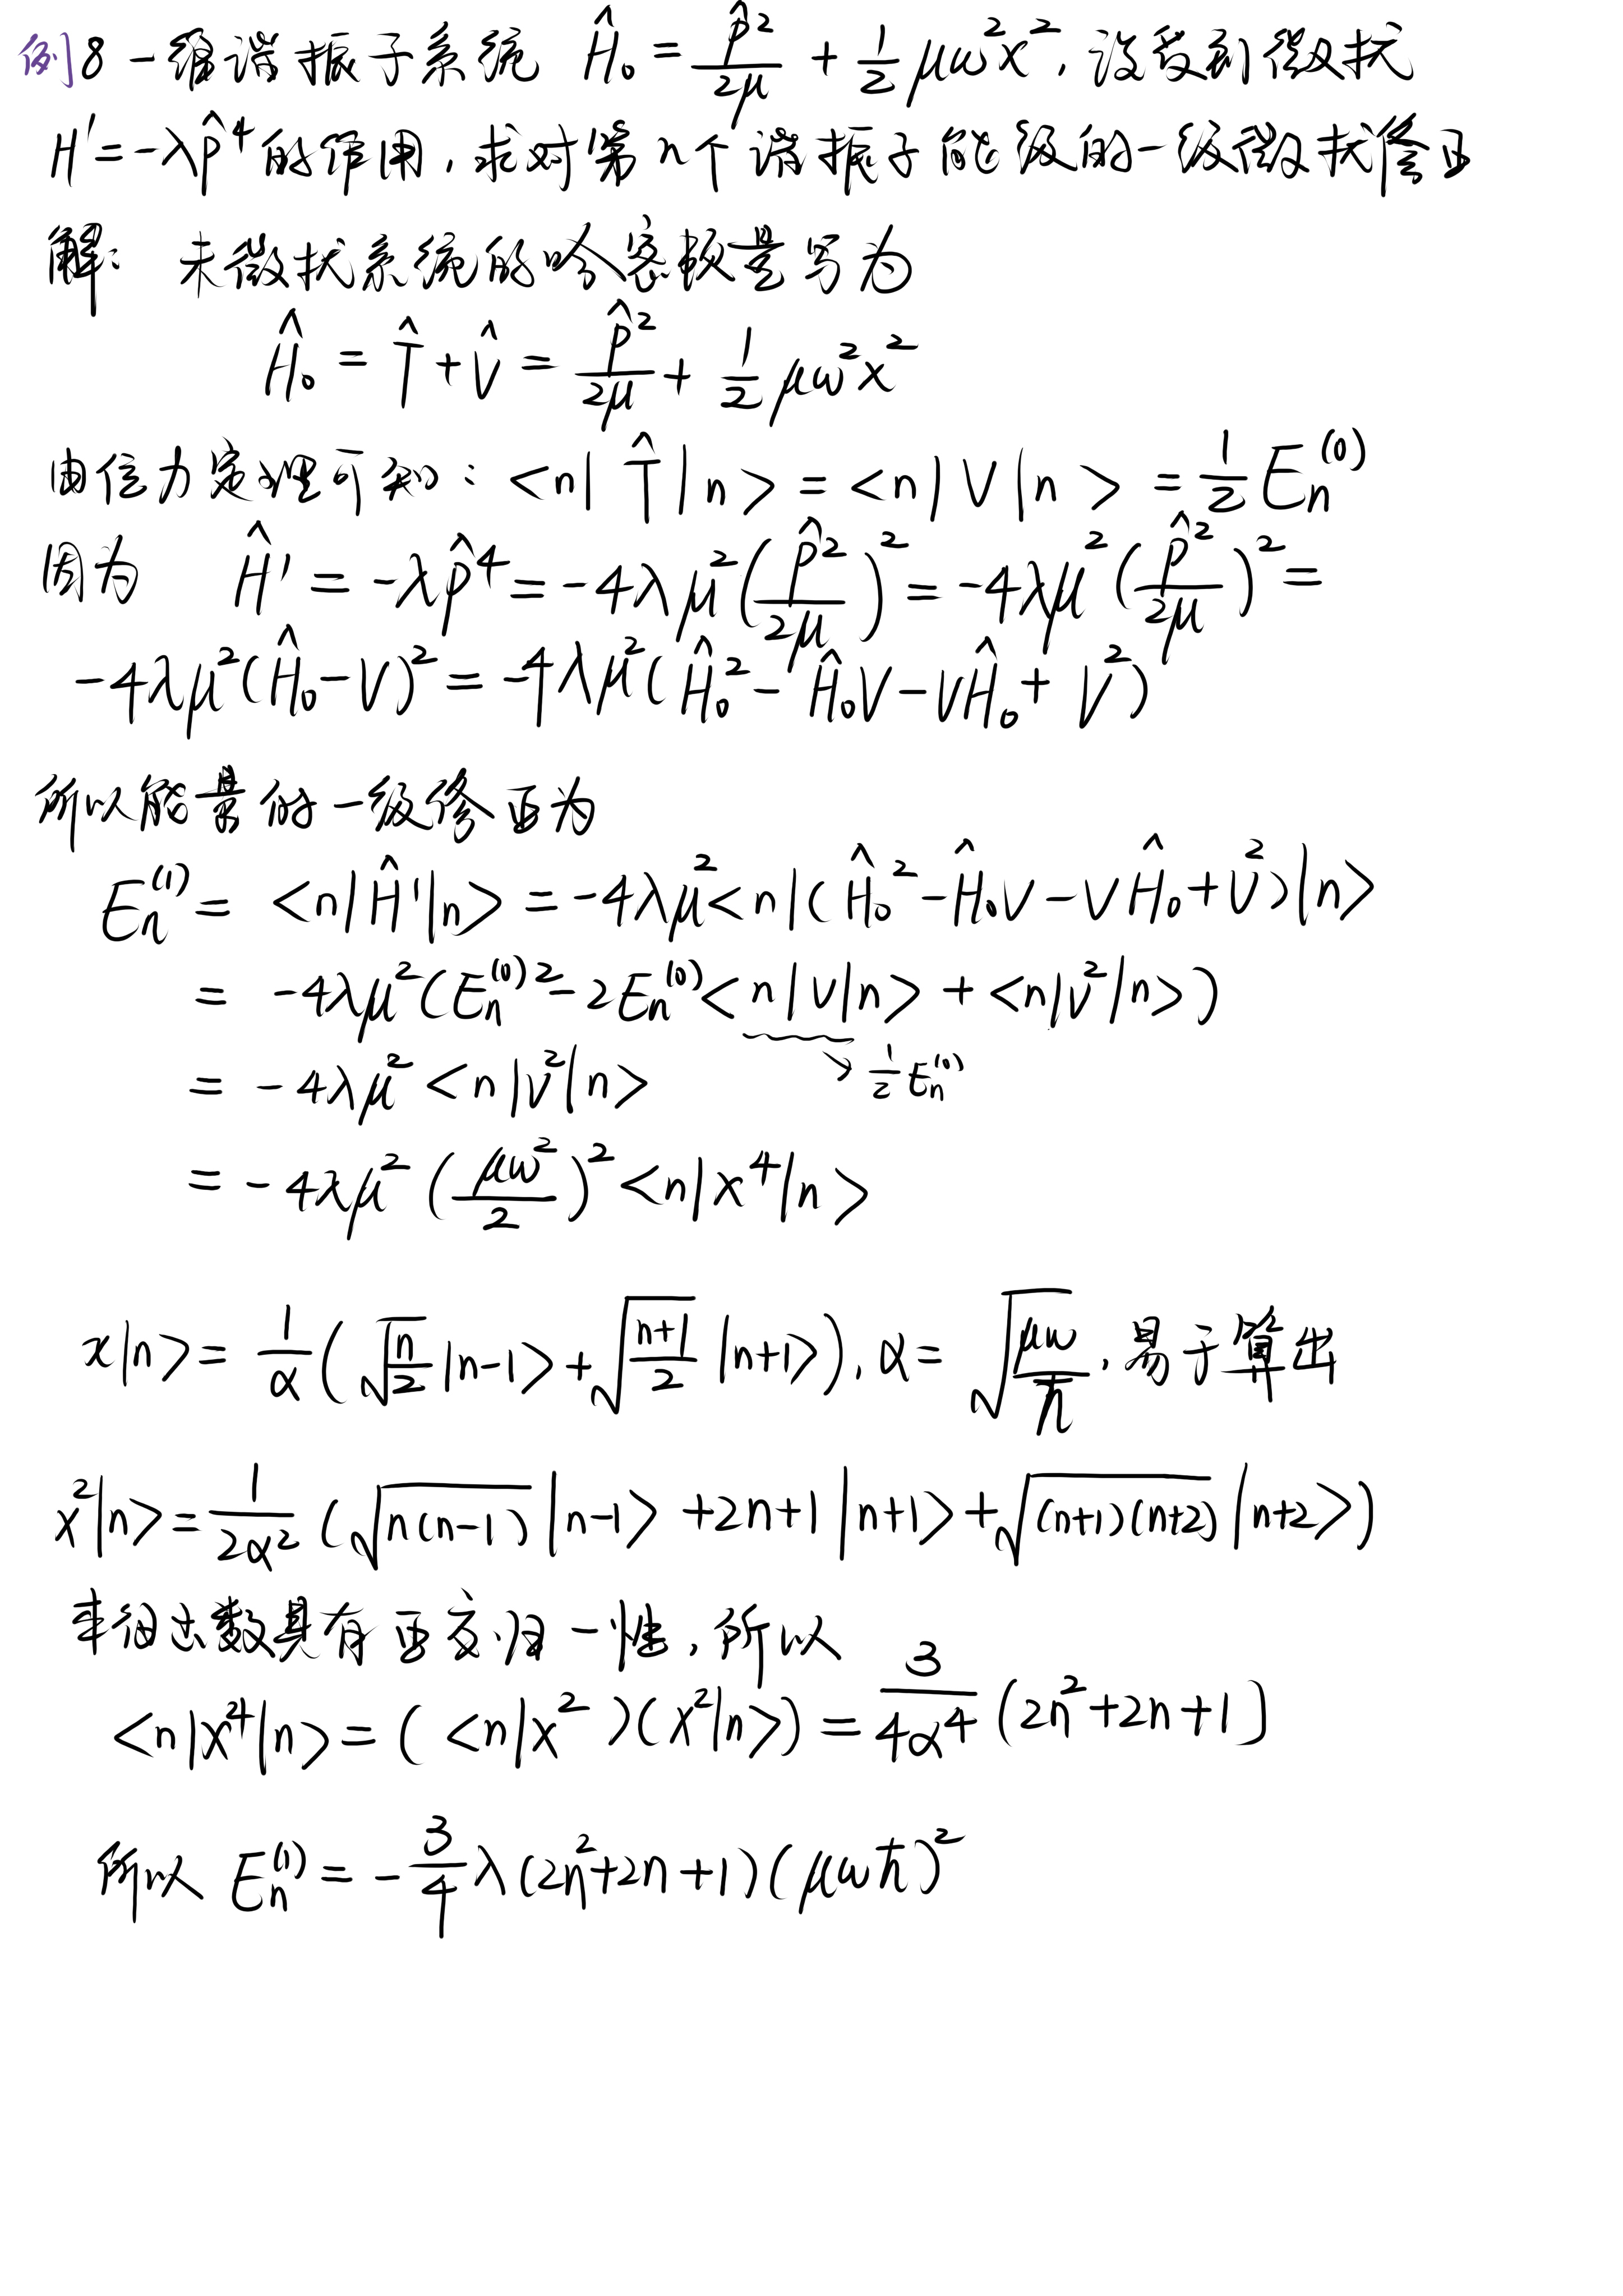 例8 一维谐振子系统 Ĥ₀ = p̂²/2μ + 1/2 μω²x², 设受到微扰
H′ = -λp̂⁴的作用, 求对第n个谐振子能级的一级微扰修正
解: 未微扰系统的哈密顿量写为
Ĥ₀ = T̂ + V̂ = p̂²/2μ + 1/2 μω²x²
由位力定理可知: <n|T̂|n> = <n|V|n> = 1/2 Eₙ⁽⁰⁾
因为 Ĥ′ = -λp̂⁴ = -4λμ²(p̂²/2μ)² = -4λμ²(p̂²/2μ)² =
-4λμ²(Ĥ₀-V)² = -4λμ²(Ĥ₀² - Ĥ₀V - VĤ₀ + V²)
所以能量的一级修正为
Eₙ⁽¹⁾ = <n|Ĥ′|n> = -4λμ²<n|(Ĥ₀² - Ĥ₀V - VĤ₀ + V²)|n>
= -4λμ²(Eₙ⁽⁰⁾² - 2Eₙ⁽⁰⁾<n|V|n> + <n|V²|n>)
→ 1/2 Eₙ⁽⁰⁾
= -4λμ²<n|V²|n>
= -4λμ²(μω²/2)²<n|x⁴|n>
x|n> = 1/α (√(n/2) |n-1> + √((n+1)/2) |n+1>), α = √(μω/ħ), 易于算出
x²|n> = 1/2α² (√(n(n-1)) |n-1> + 2n+1|n+1> + √((n+1)(n+2)) |n+2>)
数具有正交归一性, 所以
<n|x⁴|n> = (<n|x²)(x²|n>) = 3/4α⁴ (2n²+2n+1)
所以 Eₙ⁽¹⁾ = -3/4 λ(2n²+2n+1)(μωħ)²